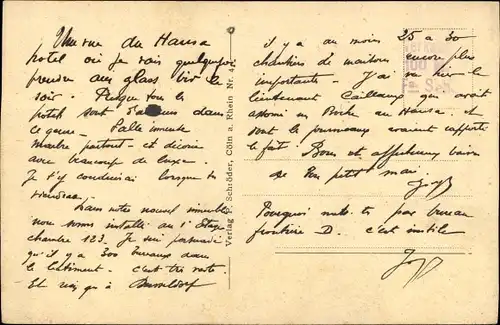 Une vue du Hansa
hotel où je vais quelquefois
prendre un glass bir le
soir. Presque tous les
hotels sont dans
ce genre. Salle immense
marbre partout et décorée
avec beaucoup de luxe.
Je t'y conduirai lorsque tu
viendras.
Dans notre nouvel immeuble
nous sommes installé au 1er Etage
chambre 123. Je suis
qu'il y a 300 bureaux dans
le bâtiment. c'est très vaste.
Et rien qu'à Dusseldorf
Verlag P. Schröder, Cöln a. Rhein Nr. 4
il y a au moins 25 a 30
de maisons encore plus
importantes. J'ai vu hier le
lieutenant Cailleaux qui avait
un Boche au Hansa et
dont les journeaux avaient rapporté
le fait. Bons et affectueux baisers
de ton petit mari
Pourquoi mets tu par bureau
frontière D. c'est inutile